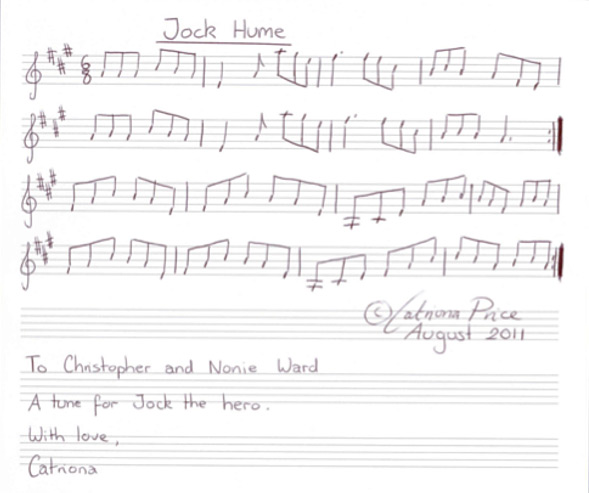 Jock Hume
6
8
© Catriona Price
August 2011
To Christopher and Nonie Ward
A tune for Jock the hero.
With love,
Catriona